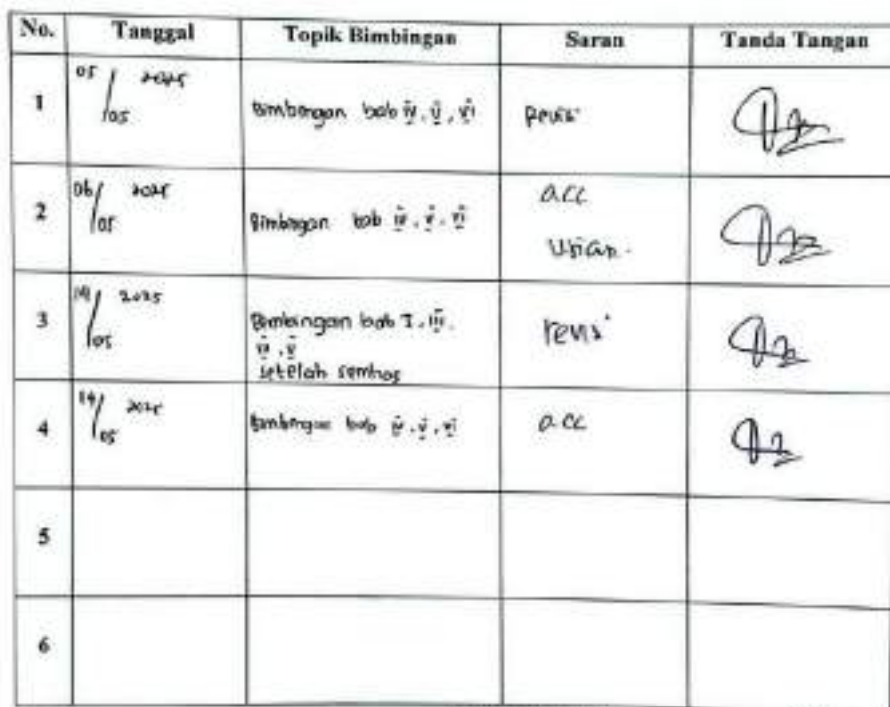 No. Tanggal Topik Bimbingan Saran Tanda Tangan
1 05/05 2025 Bimbingan bab IV, V, VI Revisi
2 06/05 2025 Bimbingan bab IV, V, VI acc
Ujian.
3 2025 Bimbingan bab I, III,
IV, V
setelah semhas
revisi
4 14/05 2025 Bimbingan bab IV, V, VI acc
5
6